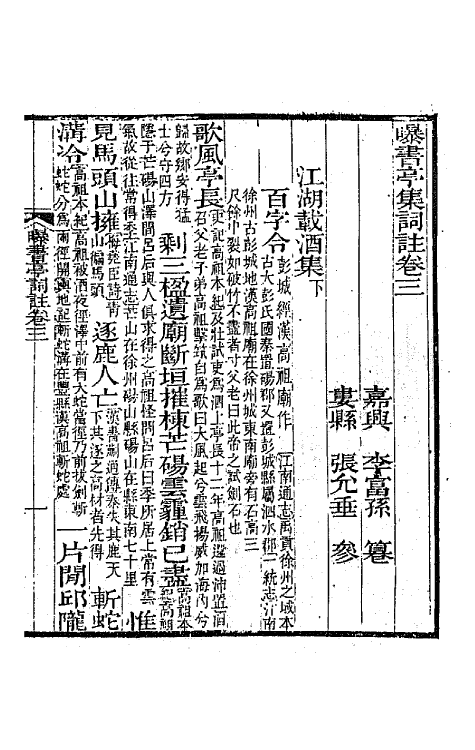 曝書亭集詞註卷三
嘉興　李富孫　纂
婁縣　張允垂　參
江湖載酒集下
百字令 彭城經漢高祖廟作 江南通志禹貢徐州之域本古大彭氏國秦置碭郡又置彭城縣屬泗水郡一統志江南
徐州古彭城地漢高祖廟在徐州城東南廟旁有石高三尺餘中裂如破竹不盡者寸父老曰此帝之試劍石也
歌風亭長 史記高祖本紀及壯試吏爲泗上亭長十二年高祖還過沛置酒召父老子弟高祖擊筑自爲歌曰大風起兮雲飛揚威加海內兮
歸故鄉安得猛士兮守四方 剩三楹遺廟斷垣摧棟芒碭雲霾銷已盡 高祖本紀高祖
隱于芒碭山澤間呂后與人俱求得之高祖怪問呂后曰季所居上常有雲氣故從往常得季江南通志芒山在徐州碭山縣碭山在縣東南七十里 惟
見馬頭山擁 梅堯臣詩靑山編馬頭 逐鹿人亡 漢書蒯通傳秦失其鹿天下共逐之高材者先得 斬蛇
溝冷 高祖本紀高祖被酒夜徑澤中前有大蛇當徑乃前拔劍斬蛇蛇分爲兩徑開輿地記斬蛇溝在豐縣漢高祖斬蛇處 一片閒邱隴
曝書亭詞註卷三　一